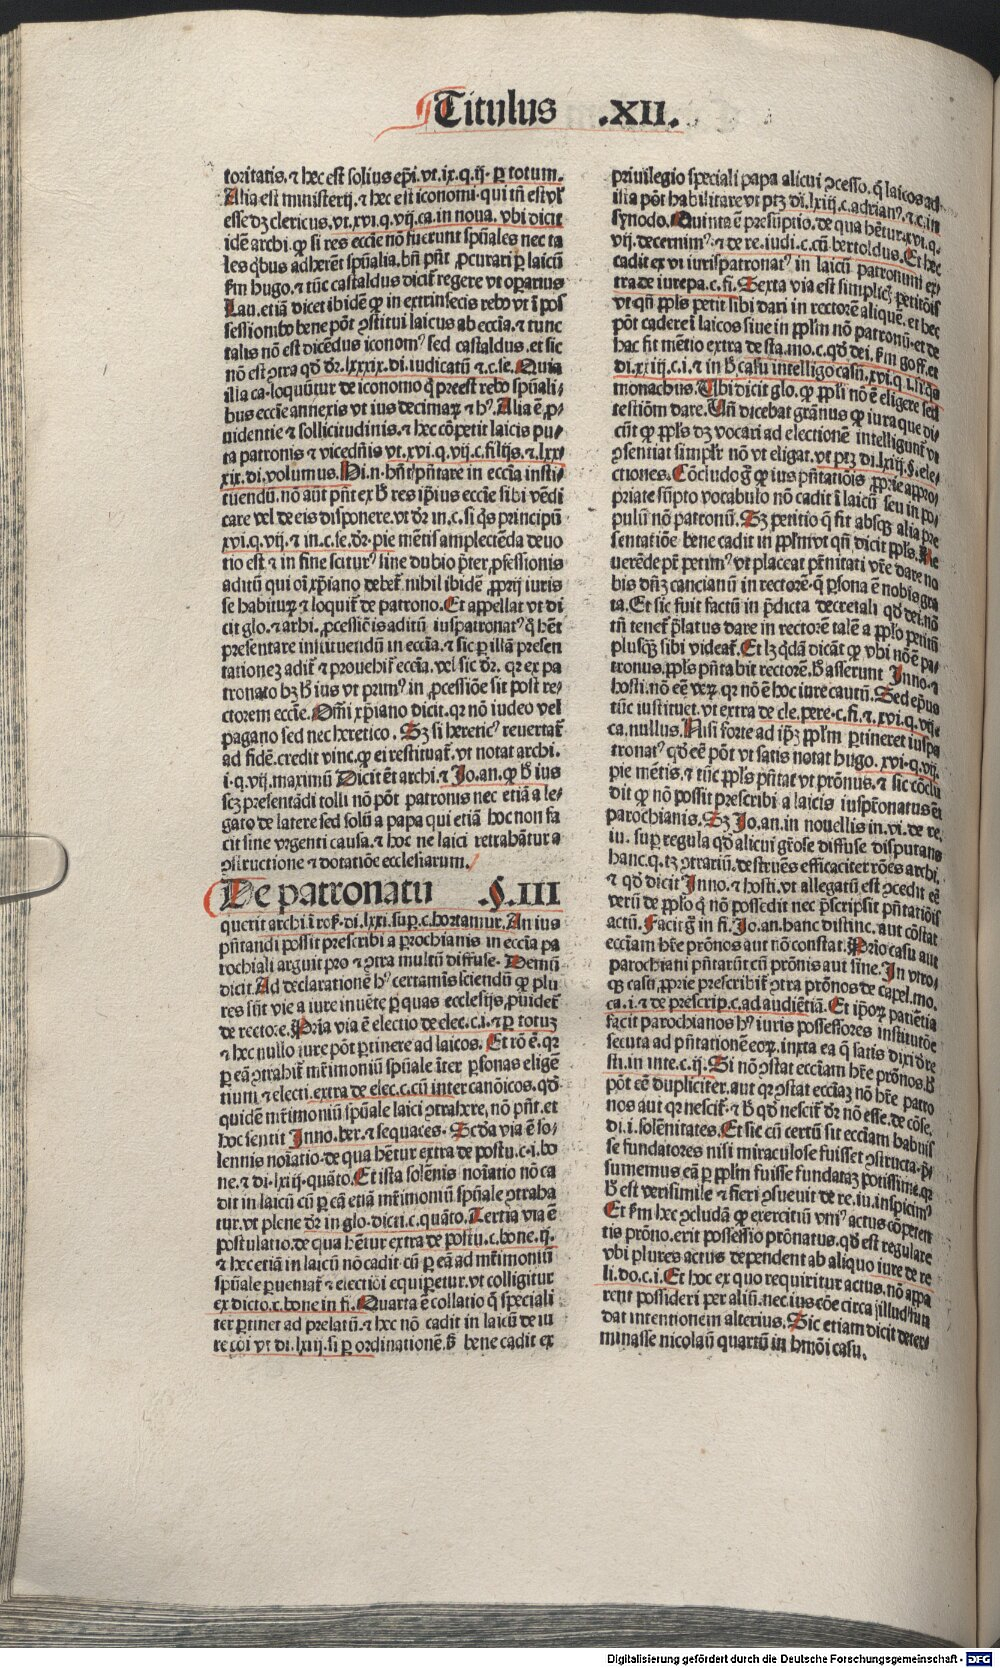 Titulus .XII.
toritatis. ⁊ hec est solius ep̄i. vt. ix. q. ij. ꝑ totum.
Alia est ministerij. ⁊ hec est iconomi. qui tn̄ est vl̓
esse dꝫ clericus. vt. xvi. q. vij. ca. in noua. vbi dicit
idē archi. ꝙ si res eccīe nō fuerunt spūales nec ta
les qͥbus adherēt spūalia. bn̄ pn̄t ꝓcurari ꝑ laicū
ẜm hugo. ⁊ tūc castaldus dicit̄ regere vt operarius
Lau. etiā dicet ibidē ꝙ in extrinsecis rebꝰ vt ī pos
sessionibꝰ bene pōt ꝯstitui laicus ab eccīa. ⁊ tunc
talis nō est dicēdus iconomꝰ sed castaldus. et sic
nō est ꝯtra qd̓ dr̄. lxxxix. di. iudicatū ⁊ c. se. Quia
illa ca. loquūtur de iconomo q̄ preest rebꝰ spūali⸗
bus eccīe annexis vt ius decimaꝝ ⁊ hꝰ. Alia ē ꝓ⸗
uidentie ⁊ sollicitudinis. ⁊ hec cōpetit laicis pu⸗
ta patronis ⁊ vicedn̄is vt. xvi. q. vij. c. filijs. ⁊. lxx⸗
xix. di. volumus. Hi. n. hn̄t ip̄ntare in eccīa insti⸗
tuendū. nō aut pn̄t ex h̓ res ip̄ius eccīe sibi vēdi
care vel de eis disponere. vt dr̄ in. c. si qͥs principū
xvi. q. vij. ⁊ in. c. se. dr̄. pie mētis amplectēda deuo
tio est ⁊ in fine scitur sine dubio p̄ter ꝓcessionis
aditū qui oī xp̄iano debet̄. nihil ibidē ꝓprij iuris
se habituꝝ ⁊ loquit̄ de patrono. Et appellat vt di
cit glo. ⁊ archi. ꝓcessiōis aditū iuspatronatꝰ q̓ hēt
presentare instituendū in eccīa. ⁊ sic ꝑ illā presen
tationeꝫ adit̄ ⁊ prouehit̄ eccīa. vel sic dr̄. qꝛ ex pa
tronato hꝫ h̓ ius vt primꝰ in ꝓcessiōe sit post re⸗
ctorem eccīe. Om̄i xp̄iano dicit. qꝛ nō iudeo vel
pagano sed nec heretico. Sꝫ si hereticꝰ reuertat̄
ad fidē. credit vinc. ꝙ ei restituat̄. vt notat archi.
i. q. vij. maximū Dicit ēt archi. ⁊ Jo. an. ꝙ h̓ ius
scꝫ presentādi tolli nō pōt patronis nec etiā a le⸗
gato de latere sed solū a papa qui etiā hoc non fa
cit sine vrgenti causa. ⁊ hoc ne laici retrahātur a
ꝯstructione ⁊ dotatiōe ecclesiarum.
De patronatu .§. III
querit archi. ī ros̄. di. lxxi. suꝑ. c. hortamur. An ius
pn̄tandi possit prescribi a prochianis in eccīa pa
rochiali arguit pro ⁊ ꝯtra multū diffuse. Demū
dicit. Ad declarationē hꝰ certaminis sciendū ꝙ plu
res sūt vie a iure inuēte ꝑ quas ecclesijs ꝓuidet̄
de rectore. Pria via ē electio de elec. c. i. ⁊ ꝑ totuꝫ
⁊ hec nullo iure pōt ꝑtinere ad laicos. Et rō ē. qꝛ
ꝑ eā ꝯtrahit̄ mr̄imoniū spūale īter ꝑsonas eligē
tium. ⁊ electi. extra de elec. c. cū inter canōicos. qd̓
quidē mr̄imoniū spūale laici ꝯtrahere. nō pn̄t. et
hoc sentit Inno. ber. ⁊ sequaces. Scd̓a via ē so⸗
lennis noīatio. de qua hētur extra de postu. c. i. bo
ne. ⁊ di. lxiij. quāto. Et ista solēnis noīatio nō ca
dit in laicū cū ꝑ eā etiā mr̄imoniū spūale ꝯtraha
tur. vt plene dr̄ in glo. dicti. c. quāto. Tertia via ē
postulatio. de qua hētur extra de postu. c. bone. ij.
⁊ hec etiā in laicū nō cadit cū ꝑ eā ad mr̄imoniū
spūale ꝑueniat̄ ⁊ electiōi equiꝑetur. vt colligitur
ex dicto. c. bone in fi. Quarta ē collatio q̄ speciali
ter ꝑtinet ad prelatū. ⁊ hec nō cadit in laicū de iu
re cōi vt di. lxiij. si ꝑ ordinationē. h̓ bene cadit ex
priuilegio speciali papa alicui ꝯcesso. q̄ laicos ad
ilia pōt habilitare vt ptꝫ di. lxiij. c. adrianꝰ. ⁊. c. in
synodo. Quinta ē presūptio. de qua hētur. xvi. q.
vij. decernimꝰ. ⁊ de re. iudi. c. cū bertoldus. Et hec
cadit ex vi iurispatronatꝰ in laicū patronum ex⸗
tra de iurepa. c. fi. Sexta via est simplicꝭ petitōis
vt qn̄ ppl̓s petit sibi dari in rectorē aliquē. et hec
pōt cadere ī laicos siue in ppl̓m nō patronū. et de
hac fit mētio extra de sta. mo. c. qd̓ dei. ẜm goff. et
di. xxiij. c. i. ⁊ in h̓ casu intelligo casū. xvi. q. i. si qͣ
monachus. Vbi dicit glo. ꝙ ppl̓i nō ē eligere sed
testiōm dare. Vn̄ dicebat grānus ꝙ iura que di⸗
cūt ꝙ ppl̓s dꝫ vocari ad electionē intelligunt̄ vt
ꝯsentiat simpl̓r nō vt eligat. vt ptꝫ di. lxiij. §. ele⸗
ctiones. Cōcludo g̓ ꝙ ius pn̄tatiōis ꝓprie appro⸗
priate sūpto vocabulo nō cadit ī laicū seu in po⸗
pulū nō patronū. Sꝫ petitio q̄ fit absqꝫ alia pre
sentatiōe bene cadit in ppl̓m vt qn̄ dicit ppl̓s. Re
uerēde pr̄ petimꝰ vt placeat pr̄nitati vr̄e dare no
bis dn̄ꝫ cancianū in rectorē. q̄ ꝑsona ē nobis gra
ta. Et sic fuit factū in p̄dicta decretali qd̓ dei. nō
tn̄ tenet̄ p̄latus dare in rectorē talē a ppl̓o petitū
plusqꝫ sibi videat̄. Et lꝫ qͥdā dicāt ꝙ vbi nō ē pa
tronus. ppl̓s pn̄tabit rectorē. h̓ asserunt Inno. ⁊
hosti. nō eē veꝝ. qꝛ nō ē hoc iure cautū. Sed ep̄us
tūc instituet. vt extra de cle. pere. c. fi. ⁊. xvi. q. vij.
ca. nullus. Nisi forte ad ip̄ꝫ ppl̓m ꝑtineret iuspa
tronatꝰ qd̓ eē pōt vt satis notat hugo. xvi. q. vij.
pie mētis. ⁊ tūc ppl̓s pn̄tat vt pr̄onus. ⁊ sic cōclu
dit ꝙ nō possit prescribi a laicis iuspr̄onatus ēt
parochianis. Sꝫ Jo. an. in nouellis in. vi. de re.
iu. suꝑ regula qd̓ alicui gr̄ose diffuse disputans
hanc. q. tꝫ ꝯtrariū. destruēs efficaciter rōes archi.
⁊ qd̓ dicit Inno. ⁊ hosti. vt allegatū est ꝯcedit eē
verū de ppl̓o q̄ nō possedit nec p̄scripsit pn̄tatiōis
actū. Facit g̓ in fi. Jo. an. hanc distinc. aut cōstat
eccīam hr̄e pr̄onos aut nō constat. Prio casu aut
parochiani pn̄tarūt cū pr̄onis aut sine. In vtro⸗
qꝫ casu ꝓprie prescribit̄ ꝯtra pr̄onos de capel. mo.
ca. i. ⁊ de prescrip. c. ad audiētiā. Et ip̄oꝝ patiētia
facit parochianos hꝰ iuris possessores institutōe
secuta ad pn̄tationē eoꝝ. iuxta ea q̄ satis dixi d̓ re
sti. in inte. c. ij. Si nō ꝯstat eccīam hr̄e pr̄onos. h̓
pōt eē dupliciter. aut qꝛ ꝯstat eccīaꝫ nō hr̄e patro
nos aut qꝛ nescit̄. ⁊ h̓ qd̓ nescit̄ dr̄ nō esse. de cōse.
di. i. solēnitates. Et sic cū certū sit eccīam habuis
se fundatores nisi miraculose fuisset ꝯstructa. p̄
sumemus eā ꝑ ppl̓m fuisse fundataꝫ potissime. qꝛ
h̓ est verisimile ⁊ fieri ꝯsueuit de re. iu. inspicimꝰ
Et ẜm hec ꝯcludā ꝙ exercitiū vniꝰ actus cōpeten
tis pr̄ono. erit possessio pr̄onatus. qd̓ est regulare
vbi plures actus dependent ab aliquo iure de re
li. do. c. i. Et hoc ex quo requiritur actus. nō appa
rent possideri per aliū. nec ius cōe circa illud futa
dat intentionem alterius. Sic etiam dicit deter⸗
minasse nicolaū quartū in hmōi casu.
Digitalisierung gefördert durch die Deutsche Forschungsgemeinschaft - DFG